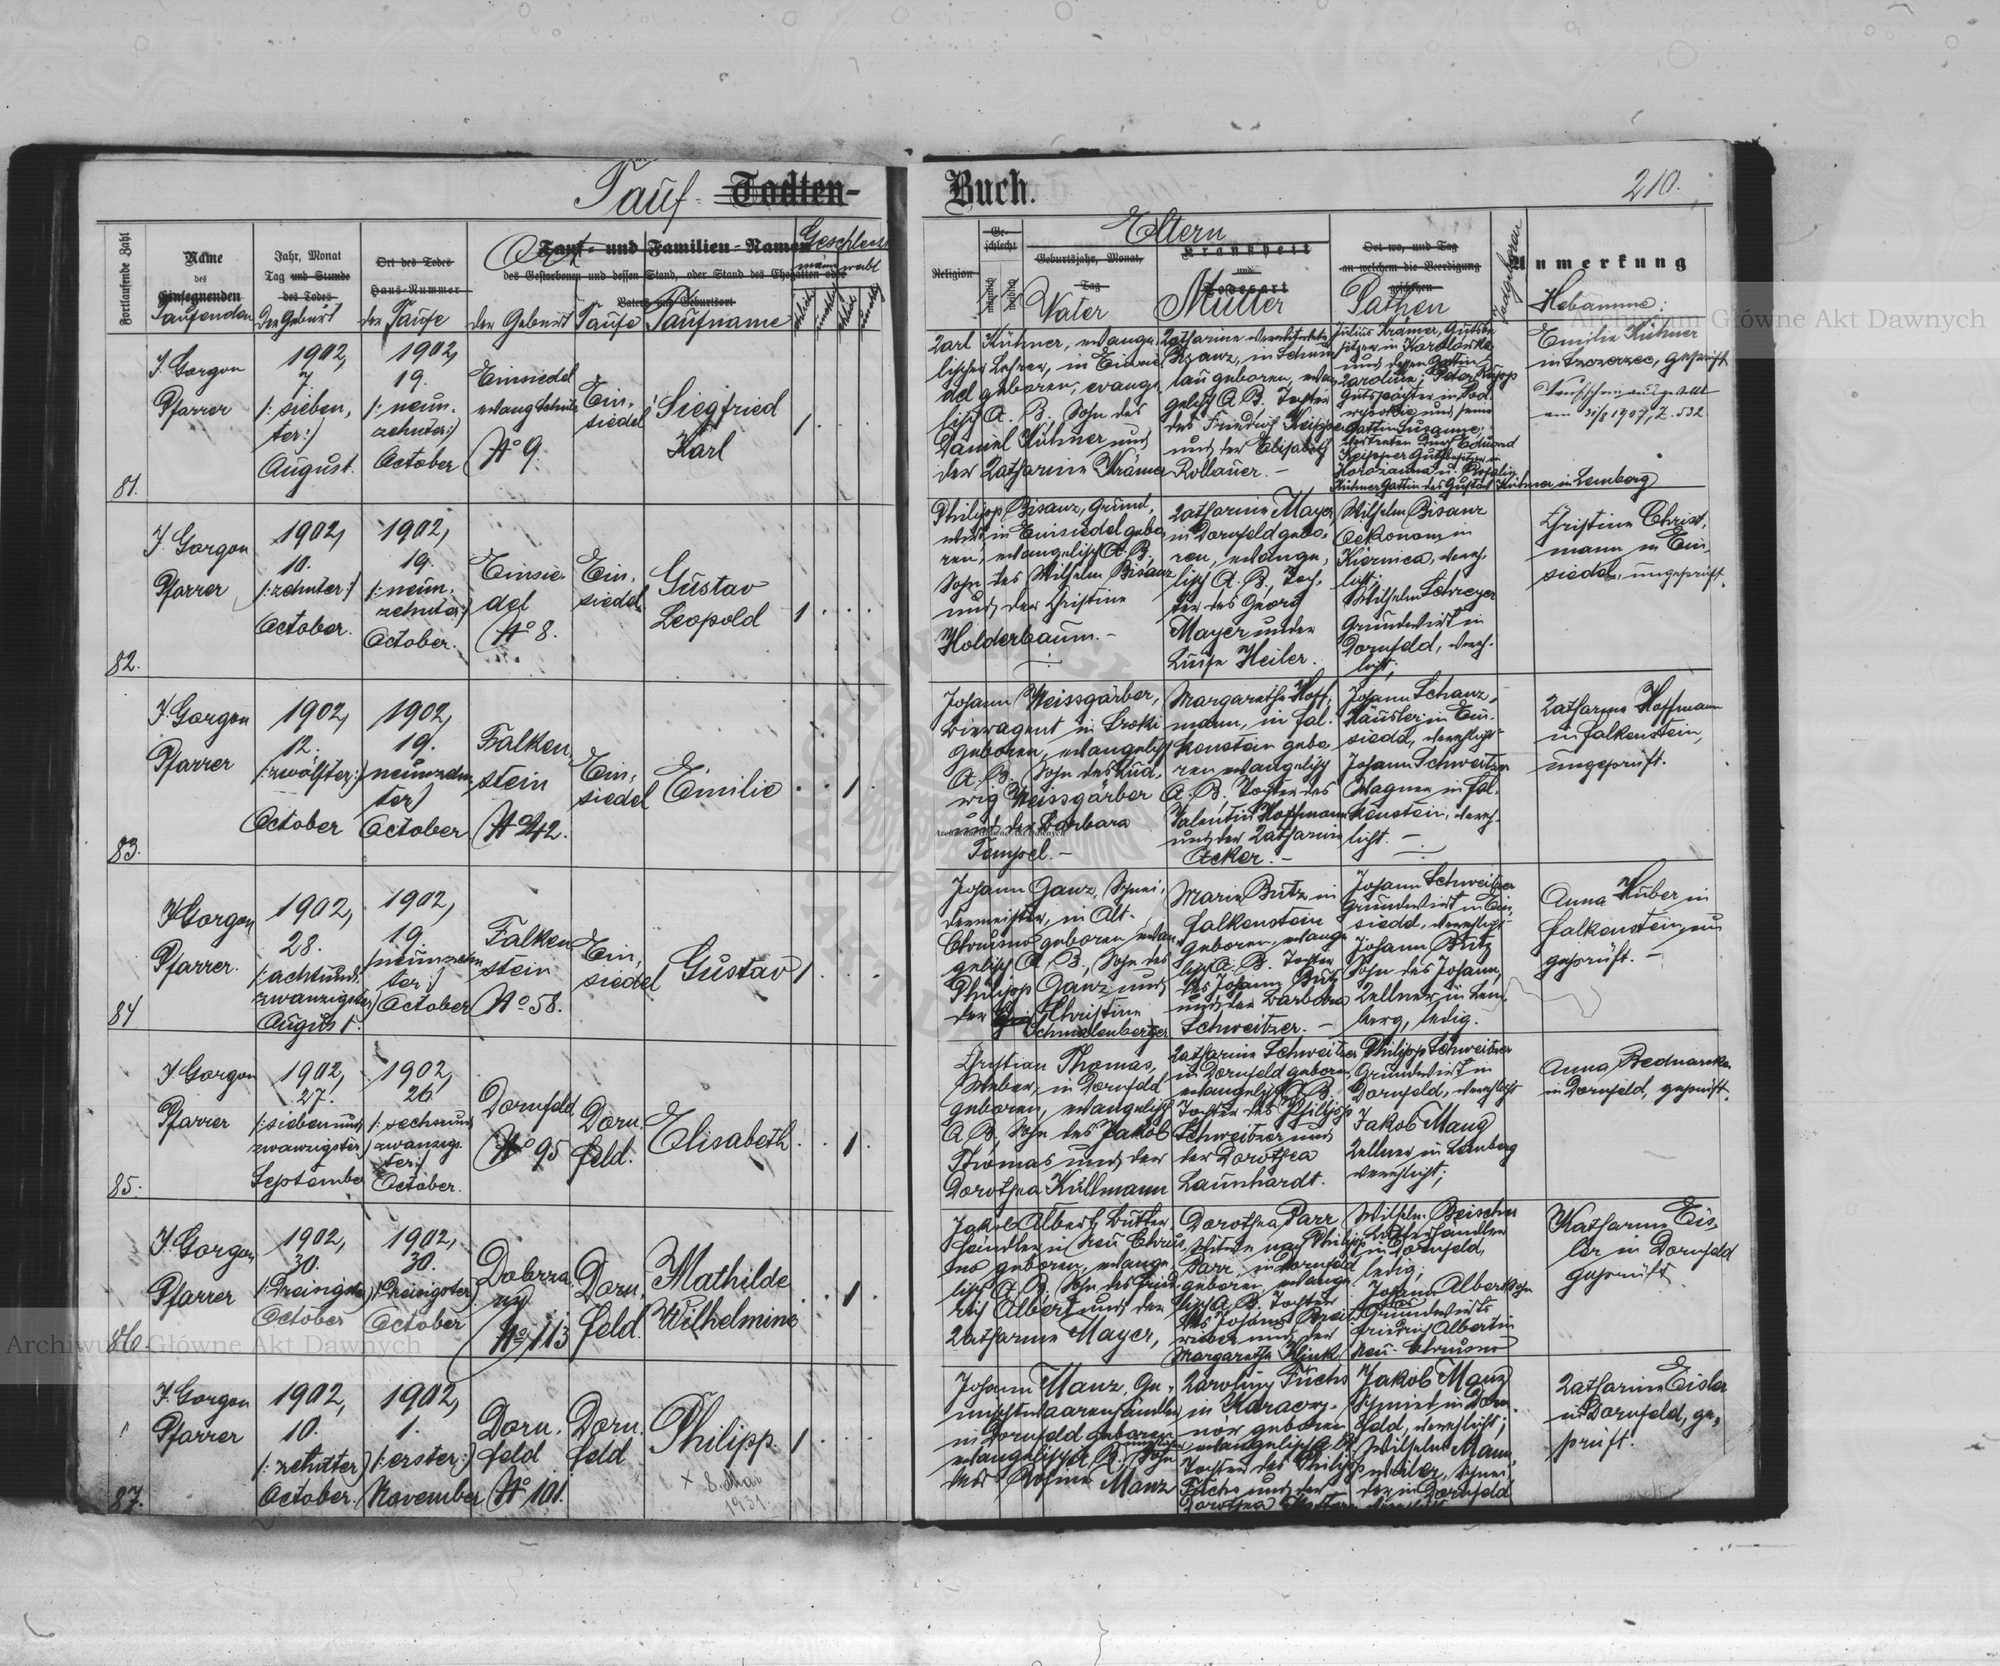 Tauf- Todten-Buch.
210.
Fortlaufende Zahl
Name des Einsegnenden Taufenden
Jahr, Monat Tag und Stunde des Todes der Geburt
Ort des Todes Haus-Nummer der Taufe
Ort
Tauf- und Familien-Namen
des Gestorbenen und dessen Stand, oder Stand des Ehegatten oder
Vaters und Geburtsort
der Geburt Taufe Taufname
Geschlecht
männl weibl
Religion
Geschlecht
männlich
weiblich
Eltern
Geburtsjahr, Monat, Tag
Vater
Krankheit und Todesart
Mutter
Ort wo, und Tag an welchem die Beerdigung geschehen
Pathen
Todgeboren
Anmerkung
Hebamme:
81.
J. Gorgon
Pfarrer
1902,
7.
/: sieben,
ter:/
August.
1902,
19.
/: neun.
zehnter:/
October
Einsiedel
evang Schule
No 9.
Ein,
siedel
Siegfried
Karl
1
Karl Kühner, evange,
lischer Lehrer, in Einsie
del geboren, evange,
lisch A. B. Sohn des
Daniel Kühner und
der Katharine Kramer
Bisanz, in Lemberg
lau geboren, evan
gelisch A. B. Tochter
des Friedrich Keipper
und der Elisabeth
Rollauer. -
Julius Kramer, Gutsbe
sitzer in
und dessen Gattin
Karoline; Peter Rupp
Gutspächter in Pod,
und seine
Gattin Susanne;
vertreten durch Eduard
Keipper Gutsbesitzer in
Horozanna u. Rosalia
Kühner Gattin des Gustav Kühner in Lemberg
Emilie Kühner
in Szczerzec, geprüft
Taufschein ausgestellt
am 31/8 1907, Z. 532
82.
J. Gorgon
Pfarrer
1902,
10.
/: zehnter:/
October.
1902,
19.
/: neun.
zehnter:/
October.
Einsie
del
No 8.
Ein,
siedel
Gustav
Leopold
1
Philipp Bisanz, Grund,
wirt in Einsiedel gebo
ren, evangelisch A. B.
Sohn des Wilhelm Bisanz
und der Christine
Holderbaum. -
Katharine Mayer,
in Dornfeld gebo,
ren, evange,
lisch A. B., Toch,
ter des Georg
Mayer und der
Luise Heiler.
Wilhelm Bisanz
Oekonom in
Kiernica, vereh,
licht;
Wilhelm Schreyer
Grundwirt in
Dornfeld, vereh.
licht;
Christine Christ,
mann in Ein,
siedel, ungeprüft.
83.
J. Gorgon
Pfarrer
1902,
12.
/: zwölfter:/
October
1902,
19.
/ neunzehn
ter/
October
Falken,
stein
No 42.
Ein,
siedel
Emilie
1
Johann Weissgärber,
Bieragent in Sroki
geboren, evangelisch
A. B. Sohn des Lud,
wig Weissgärber
und der Barbara
Tempel. -
Margarethe Hoff,
mann, in Fal.
kenstein gebo
ren evangelisch
A. B. Tochter des
Valentin Hoffmann
und der Katharine
Acker. -
Johann Schanz,
Häusler in Ein.
siedel, verehlicht
Johann Schweitzer
Wagner in Fal.
kenstein, vereh.
licht. -
Katharine Hoffmann
in Falkenstein,
ungeprüft.
84
J. Gorgon
Pfarrer.
1902,
28.
/: achtund,
zwanzigster/
August.
1902,
19.
/neunzehn
ter:/
October
Falken
stein
No 58.
Ein,
siedel
Gustav
1
Johann Ganz, Schnei,
dermeister, in Alt.
Chrusno geboren evan
gelisch A. B., Sohn des
Philipp Ganz und
der Christine
Schmalenberger
Marie Butz in
Falkenstein
geboren, evange
lisch A. B. Tochter
des Johann Butz
und der Barbara
Schweitzer. -
Johann Schweitzer
Grundwirt in Ein,
siedel, verehlicht
Johann Butz
Sohn des Johann,
Kellner in Lem,
berg, ledig.
Anna Huber in
Falkenstein, un
geprüft. -
85.
J. Gorgon
Pfarrer
1902,
27.
/: siebenund
zwanzigster/
September
1902,
26
/: sechsund
zwanzig.
ter:/
October.
Dornfeld
No 95
Dorn,
feld.
Elisabeth
1
Christian Thomas,
Weber, in Dornfeld
geboren, evangelisch
A. B., Sohn des Jakob
Thomas und der
Dorothea Kullmann
Katharine Schweitzer
in Dornfeld geboren,
evangelisch A. B.
Tochter des Philipp
Schweitzer und
der Dorothea
Launhardt.
Philipp Schweitzer
Grundwirt in
Dornfeld, verehlicht
Jakob Maug
Kellner in Lemberg
verehlicht;
Anna Bednarska
in Dornfeld, geprüft.
86.
J. Gorgon
Pfarrer
1902,
30.
/: Dreißigster/
October
1902,
30.
/: Dreißigster/
October
Dobrza
ny
No 113
Dorn,
feld.
Mathilde
Wilhelmine
1
Jakob Albert, Butter
händler in Neu Chrus,
no geboren, evange,
lisch A. B. Sohn des Fried.
rich Albert und der
Katharine Mayer,
Dorothea Parr
Witwe nach Philipp
Parr, in Dornfeld
geboren, evange.
lisch A. B. Tochter
des Johann
und der
Margaretha Klink
Wilhelm Beischer
in Dornfeld,
ledig;
Johann Albert Sohn
des Grundwirts
Friedrich Albert in
Neu-Chrusno
Katharine Eis,
ler in Dornfeld
geprüft
87.
J. Gorgon
Pfarrer
1902,
10.
/: zehnter/
October.
1902,
1.
/: erster:/
November
Dorn.
feld
No 101.
Dorn.
feld
Philipp.
+ 8. Mai
1931.
1
Johann Manz, Ge,
mischtwaarenhändler
in Dornfeld geboren
evangelisch A. B. Sohn
der Rosine Manz
Karoline Fuchs
in
geboren
evangelisch A. B.
Tochter des Philipp
Fuchs und der
Dorothea
Jakob Manz
Schmied in Dorn.
feld, verehlicht;
Wilhelm Mann,
weiler, Schnei,
der in Dornfeld
Katharine Eisler
in Dornfeld, ge,
prüft.
Archiwum Główne Akt Dawnych
Archiwum Główne Akt Dawnych
Archiwum Główne Akt Dawnych